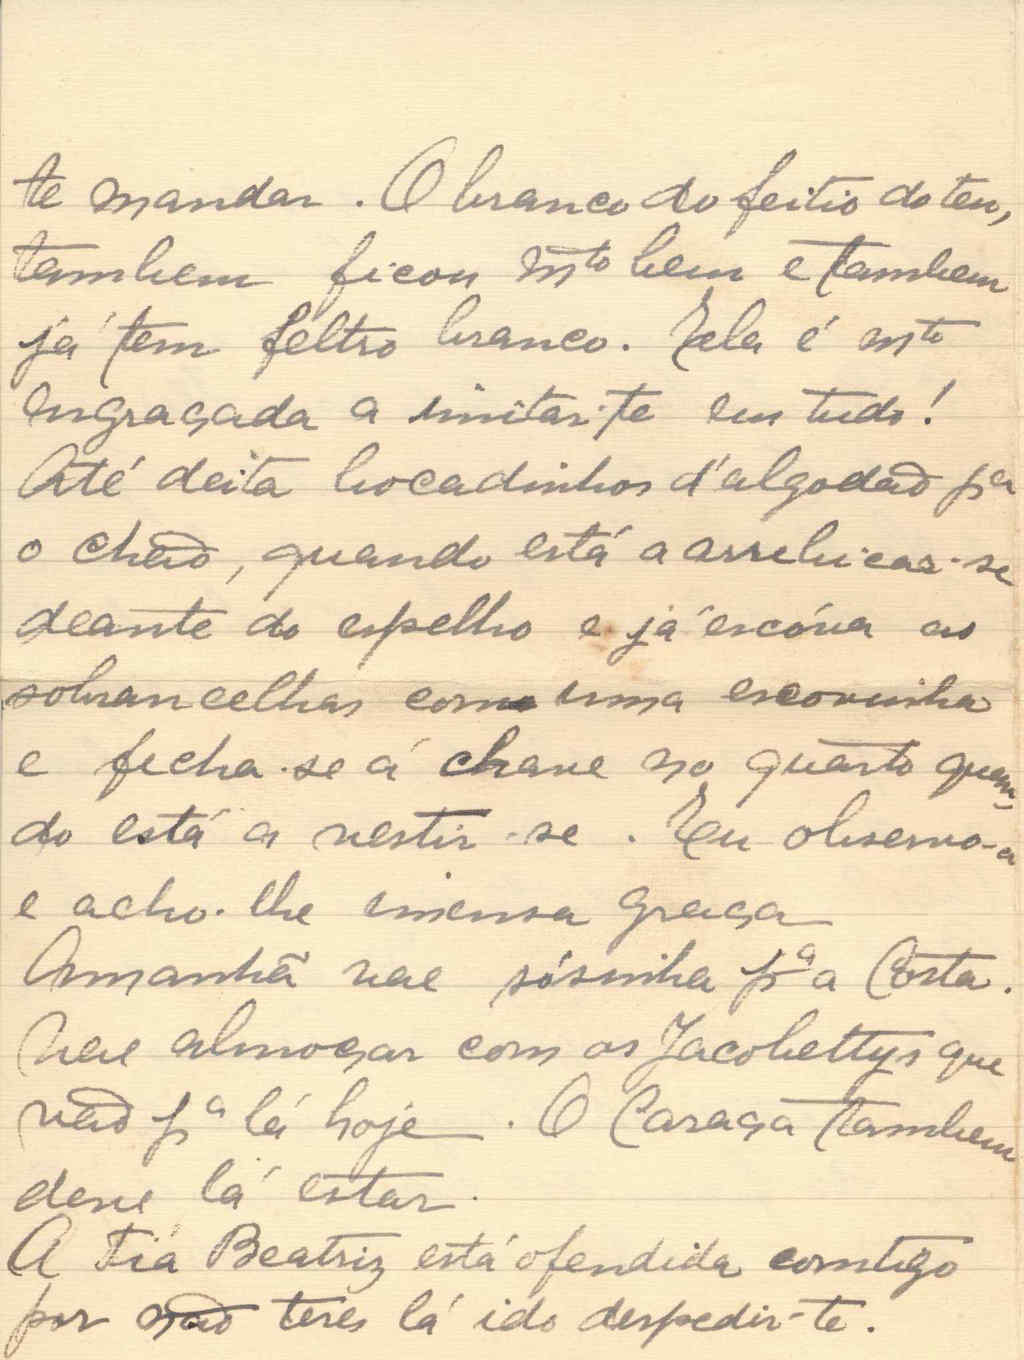 te mandar. O branco do feitio do teu,
tambem ficou mto bem e tambem
já tem feltro branco. Ela é mto
engraçada a imitar-te em tudo!
Até deita bocadinhos d'algodão pª
o chão, quando está a arrebicar-se
deante do espelho e já escóva as
sobrancelhas com uma escovinha
e fecha-se á chave no quarto quan-
do está a vestir-se. Eu observo-a
e acho-lhe imensa graça
Amanhã vae sósinha pª a Costa.
Vae almoçar com os Jacobettys que
vão pª lá hoje. O Caraça tambem
deve lá estar.
A Tia Beatriz está ofendida comtigo
por não teres lá ido despedir-te.